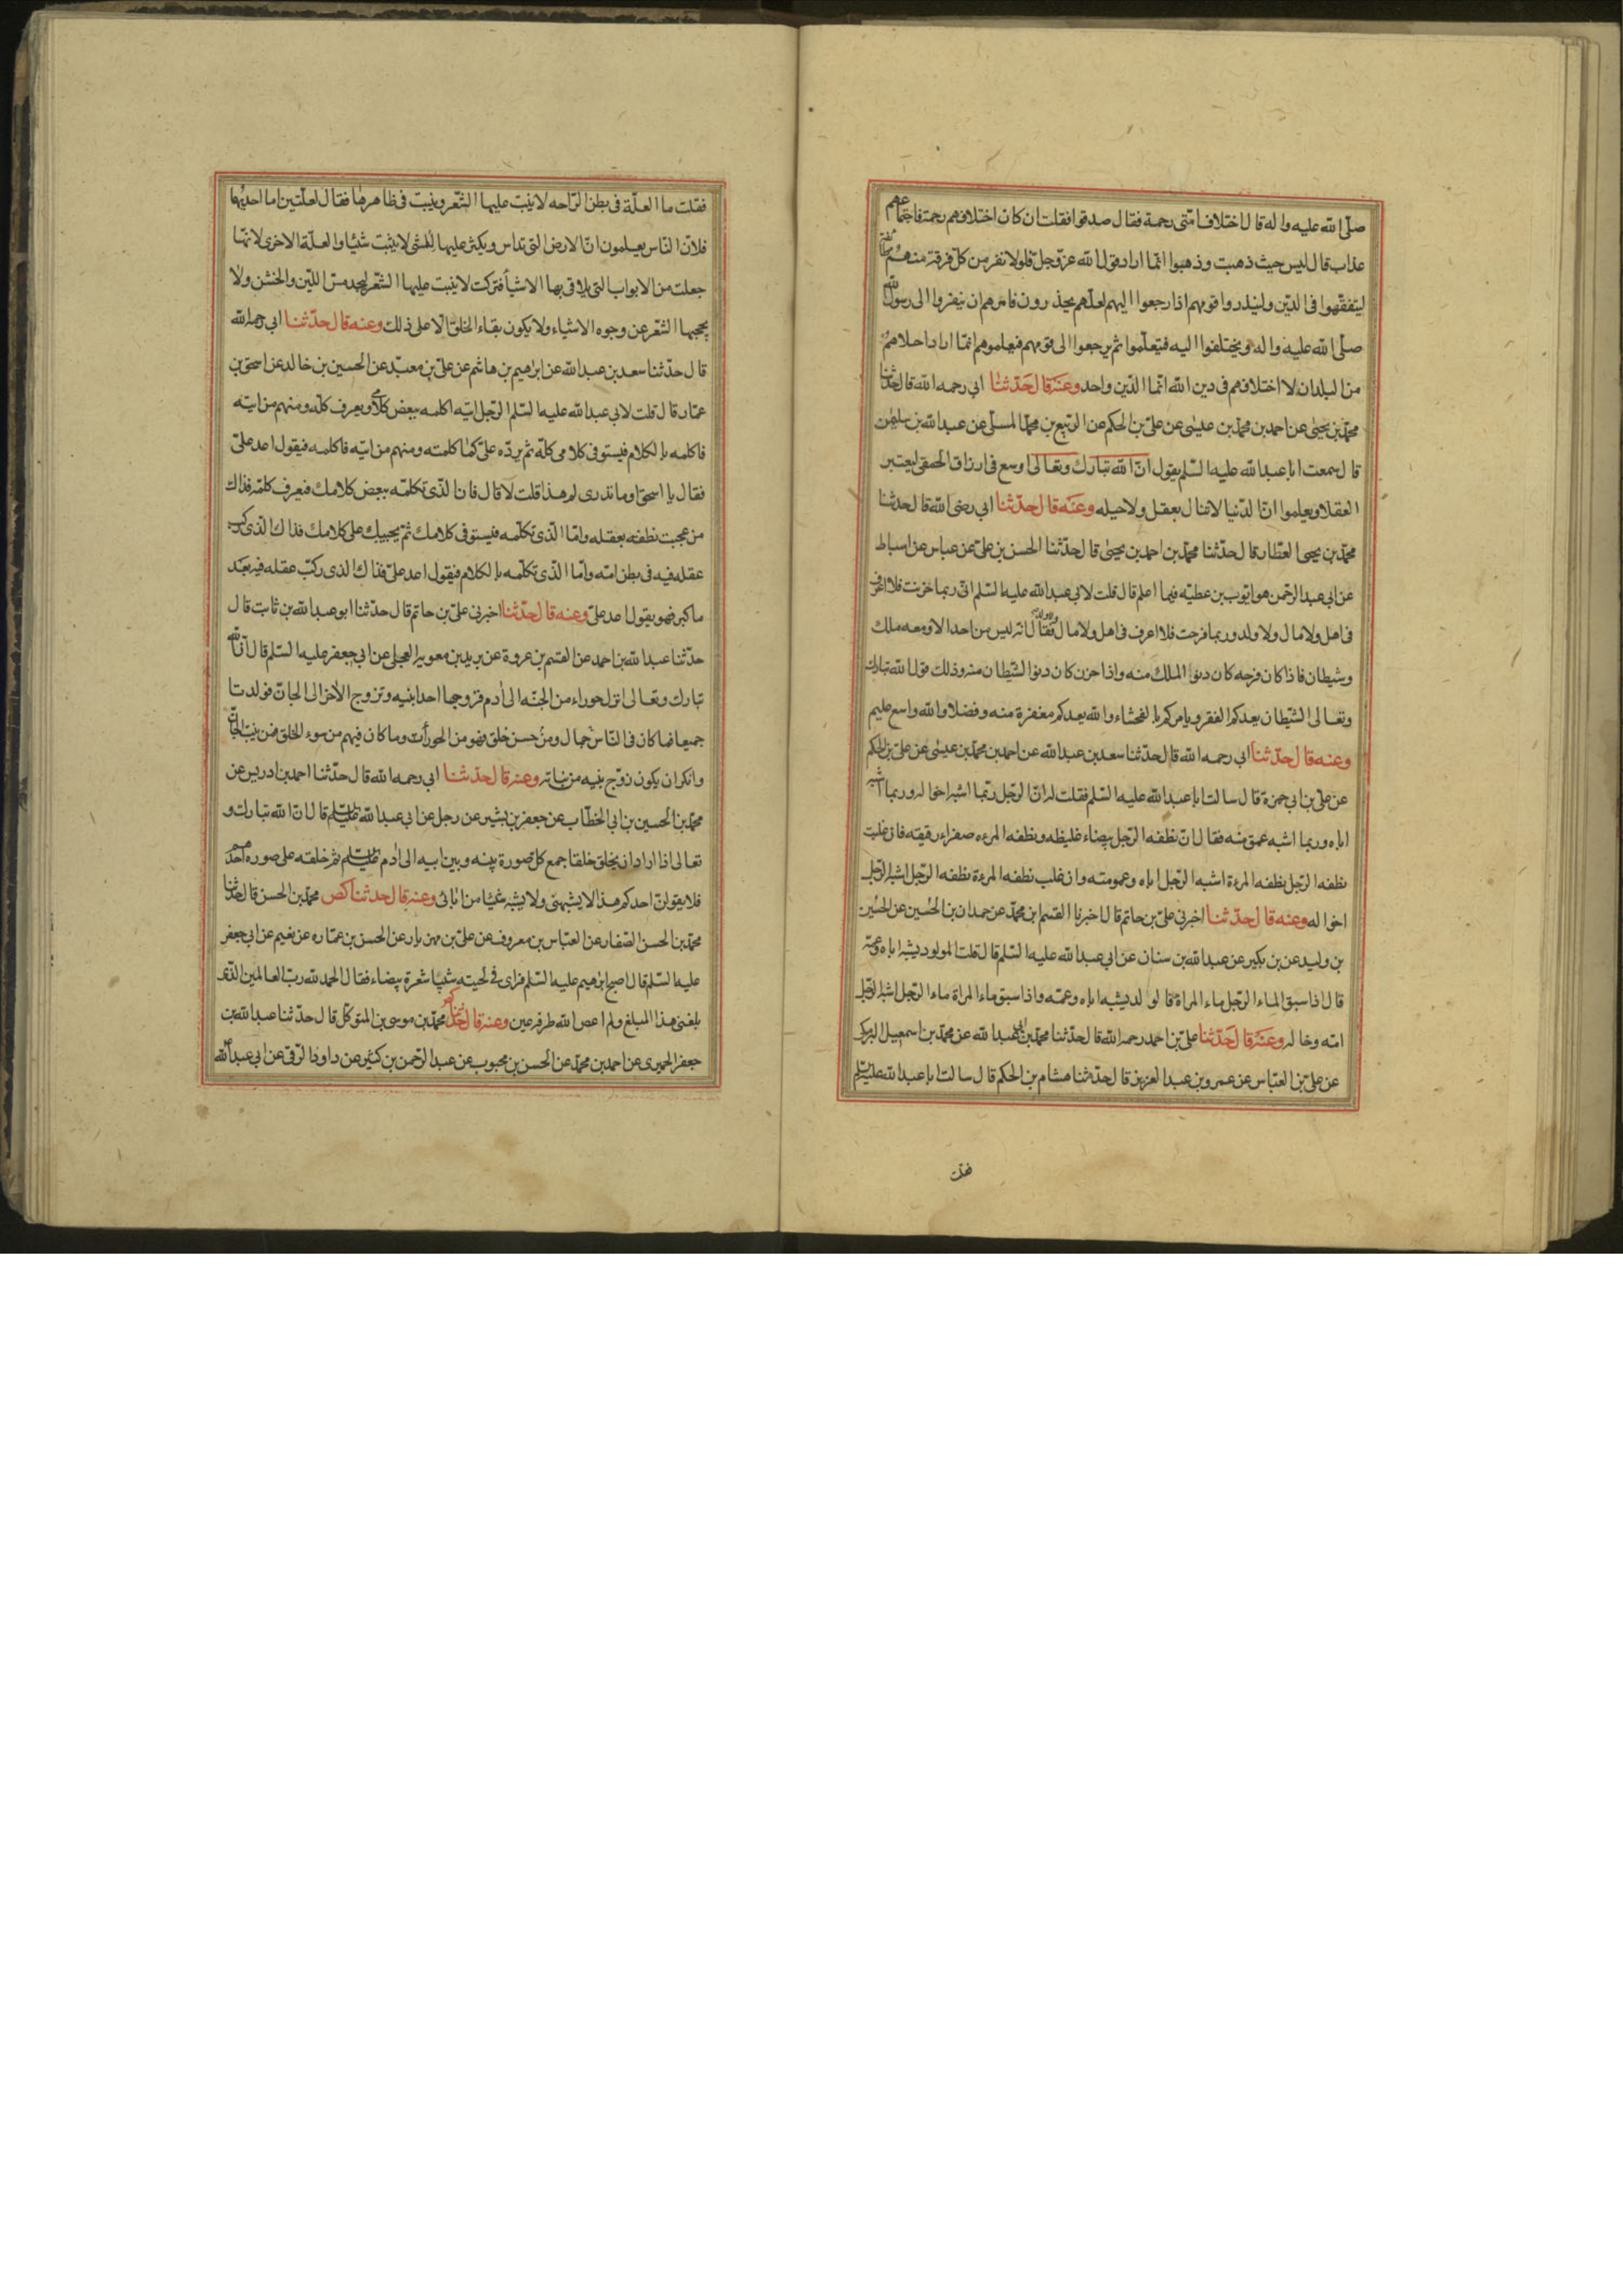 صلّى الله عليه واله قال اختلاف امّتى رحمة فقال صدقوا فقلت ان كان اختلافهم رحمة فاجتماعهم
عذاب قال ليس حيث ذهبت وذهبوا انّما اراد قول الله عزّ وجلّ فلولا نفر من كلّ فرقة منهم طائفة
ليتفقّهوا فى الدّين ولينذروا قومهم اذا رجعوا اليهم لعلّهم يحذرون فامرهم ان ينفروا الى رسول الله
صلّى الله عليه واله ويختلفوا اليه فيتعلّموا ثم يرجعوا الى قومهم فيعلموهم انّما اراد اختلافهم
من البلدان لا اختلافهم فى دين الله انّما الدّين واحد وعنه قال حدّثنا ابى رحمه الله قال حدّثنا
محمّد بن يحيى عن احمد بن محمّد بن عيسى عن علىّ بن الحكم عن الرّبيع بن محمّد المسلّى عن عبد الله بن سليمن
قال سمعت ابا عبد الله عليه السّلم يقول انّ الله تبارك وتعالى اوسع فى ارزاق الحمقى ليعتبر
العقلا ويعلموا انّ الدّنيا لا تنال بعقل ولا حيله وعنه قال حدّثنا ابى رضى الله قال حدثنا
محمّد بن يحيى العطّار قال حدّثنا محمّد بن احمد بن يحيى قال حدّثنا الحسن بن علىّ عن عباس عن اسباط
عن ابى عبد الرّحمن هو ايّوب بن عطيّه فيما اعلم قال قلت لابى عبد الله عليه السّلم انّى ربما حزنت فلا اعرف
فى اهل ولا مال ولا ولد وربما فرحت فلا اعرف فى اهل ولا مال ولا ولد فقال انّه ليس من احد الا ومعه ملك
وشيطان فاذا كان فرحه كان دنوّ الملك منه واذا حزن كان دنوّ الشّيطان منه وذلك قول الله تبارك
وتعالى الشّيطان يعدكم الفقر ويامركم بالفحشاء والله يعدكم مغفرة منه وفضلا والله واسع عليم
وعنه قال حدّثنا ابى رحمه الله قال حدّثنا سعد بن عبد الله عن احمد بن محمّد بن عيسى عن علىّ بن الحكم
عن علىّ بن ابى حمزة قال سالت ابا عبد الله عليه السّلم فقلت له انّ الرّجل ربّما اشبه اخواله وربما اشبه
اباه وربما اشبه عمومته فقال انّ نطفه الرّجل بيضاء غليظه ونطفه المرءه صفراء رقيقه فان غلبت
نطفه الرّجل نطفه المرءة اشبه الرّجل اباه وعمومته وان غلب نطفه المرءة نطفه الرّجل اشبه الرّجل
اخواله وعنه قال حدّثنا اخبرنى علىّ بن حاتم قال اخبرنا القسم بن محمّد عن حمدان بن الحُسين عن الحُسين
بن وليد عن بن بكير عن عبد الله بن سنان عن ابى عبد الله عليه السّلم قال قلت المولود يشبه اباه وعمّه
قال اذا سبق الماء الرّجل ماء المراة فالولد يشبه اباه وعمّه واذا سبق ماء المراة ماء الرّجل اشبه الرّجل
امّه وخاله وعنه قال حدّثنا علىّ بن احمد رحمه الله قال حدّثنا محمّد بن ابى عبد الله عن محمّد بن اسمعيل البرمكى
عن علىّ بن العبّاس عن عمرو بن عبد العزيز قال حدّثنا هشام بن الحكم قال سالت ابا عبد الله عليه السّلم
فقلت
فقلت ما العلّة فى بطن الرّاحه لا ينبت عليها الشّعر وينبت فى ظاهرها فقال لعلّتين اما احديهما
فلانّ النّاس يعلمون انّ الارض الّتى تداس ويكثر عليها المشى لا ينبت شيئا والعلّة الاخرى لانّها
جعلت من الابواب التى يلاقى بها الاشياء فتركت لا ينبت عليها الشّعر ليجد مسّ اللّين والخشن ولا
يحجبها الشّعر عن وجوه الاشياء ولا يكون بقاء الخلق الّا على ذلك وعنه قال حدّثنا ابى رحمه الله
قال حدّثنا سعد بن عبد الله عن ابرهيم بن هاشم عن علىّ بن معبد عن الحسين بن خالد عن اسحق بن
عمّار قال قلت لابى عبد الله عليه السّلم الرّجل ايته اكلمه ببعض كلامى ويعرف كلّه ومنهم من ايته
فاكلمه بالكلام فيستوفى كلامى كلّه ثم يردّه علىّ كما كلمته ومنهم من ايته فاكلمه فيقول اعد علىّ
فقال يا اسحق وما تدرى لم هذا قلت لا قال فان الّذى تكلّمه ببعض كلامك فيعرف كلّه فذاك
من عجنت نطفته بعقله وامّا الّذى تكلّمه فيستوفى كلامك ثمّ يجيبك على كلامك فذاك الّذى ركب
عقله فيه فى بطن امّه وامّا الّذى تكلّمه بالكلام فيقول اعد علىّ فذاك الذى ركب عقله فيه بعد
ما كبر فهو يقول اعد علىّ وعنه قال حدّثنا اخبرنى علىّ بن حاتم قال حدّثنا ابو عبد الله بن ثابت قال
حدّثنا عبد الله بن احمد عن القسم بن عروة عن بريد بن معويه العجلى عن ابى جعفر عليه السّلم قال انّ الله
تبارك وتعالى انزل حوراء من الجنّه الى ادم فزوجها احد ابنيه وتزوج الاخر الى الجانّ فولدتا
جميعا فما كان فى النّاس من جمال ومن حسن خلق فهو من الحوراء وما كان فيهم من سوء الخلق فمن بنت الجانّ
وانكر ان يكون زوّج بنيه من بناته وعنه قال حدّثنا ابى رحمه الله قال حدّثنا احمد بن ادريس عن
محمّد بن الحسين بن ابى الخطّاب عن جعفر بن بشير عن رجل عن ابى عبد الله عليه السّلم قال انّ الله تبارك و
تعالى اذا اراد ان يخلق خلقا جمع كل صورة بينه وبين ابيه الى ادم عليه السّلم ثم خلقه على صوره احدهم
فلا يقولنّ احدكم هذا لا يشبهنى ولا يشبه شيئا من ابائى وعنه قال حدثنا محمّد بن الحسن قال حدّثنا
محمّد بن الحسن الصّفار عن العبّاس بن معروف عن علىّ بن مهزيار عن الحسن بن عمّاره عن نعيم عن ابى جعفر
عليه السّلم قال اصبح ابرهيم عليه السّلم فراى فى لحيته شيبا شعرة بيضاء فقال الحمد لله ربّ العالمين الّذى
بلغنى هذا المبلغ ولم اعص الله طرفه عين وعنه قال حدّثنا محمّد بن موسى بن المتوكّل قال حدّثنا عبد الله بن
جعفر الحميرى عن احمد بن محمّد عن الحسن بن محبوب عن عبد الرّحمن بن كثير عن داود الرّقى عن ابى عبد الله